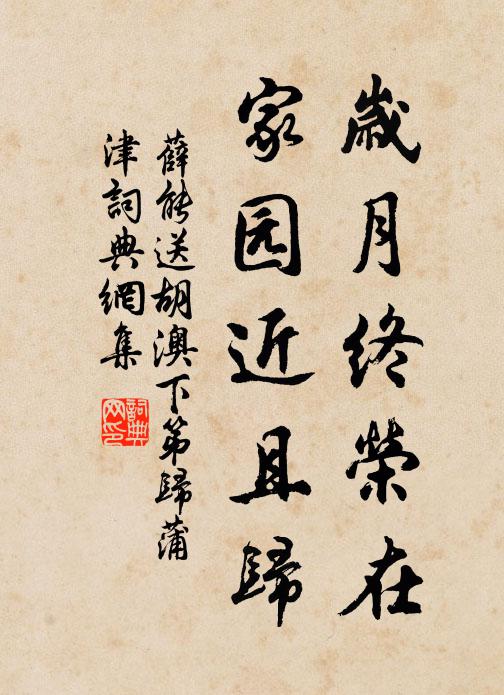 歲月终榮在
家园近且歸
薛能送胡澳下第歸蒲
津詞典網集
詞典网印